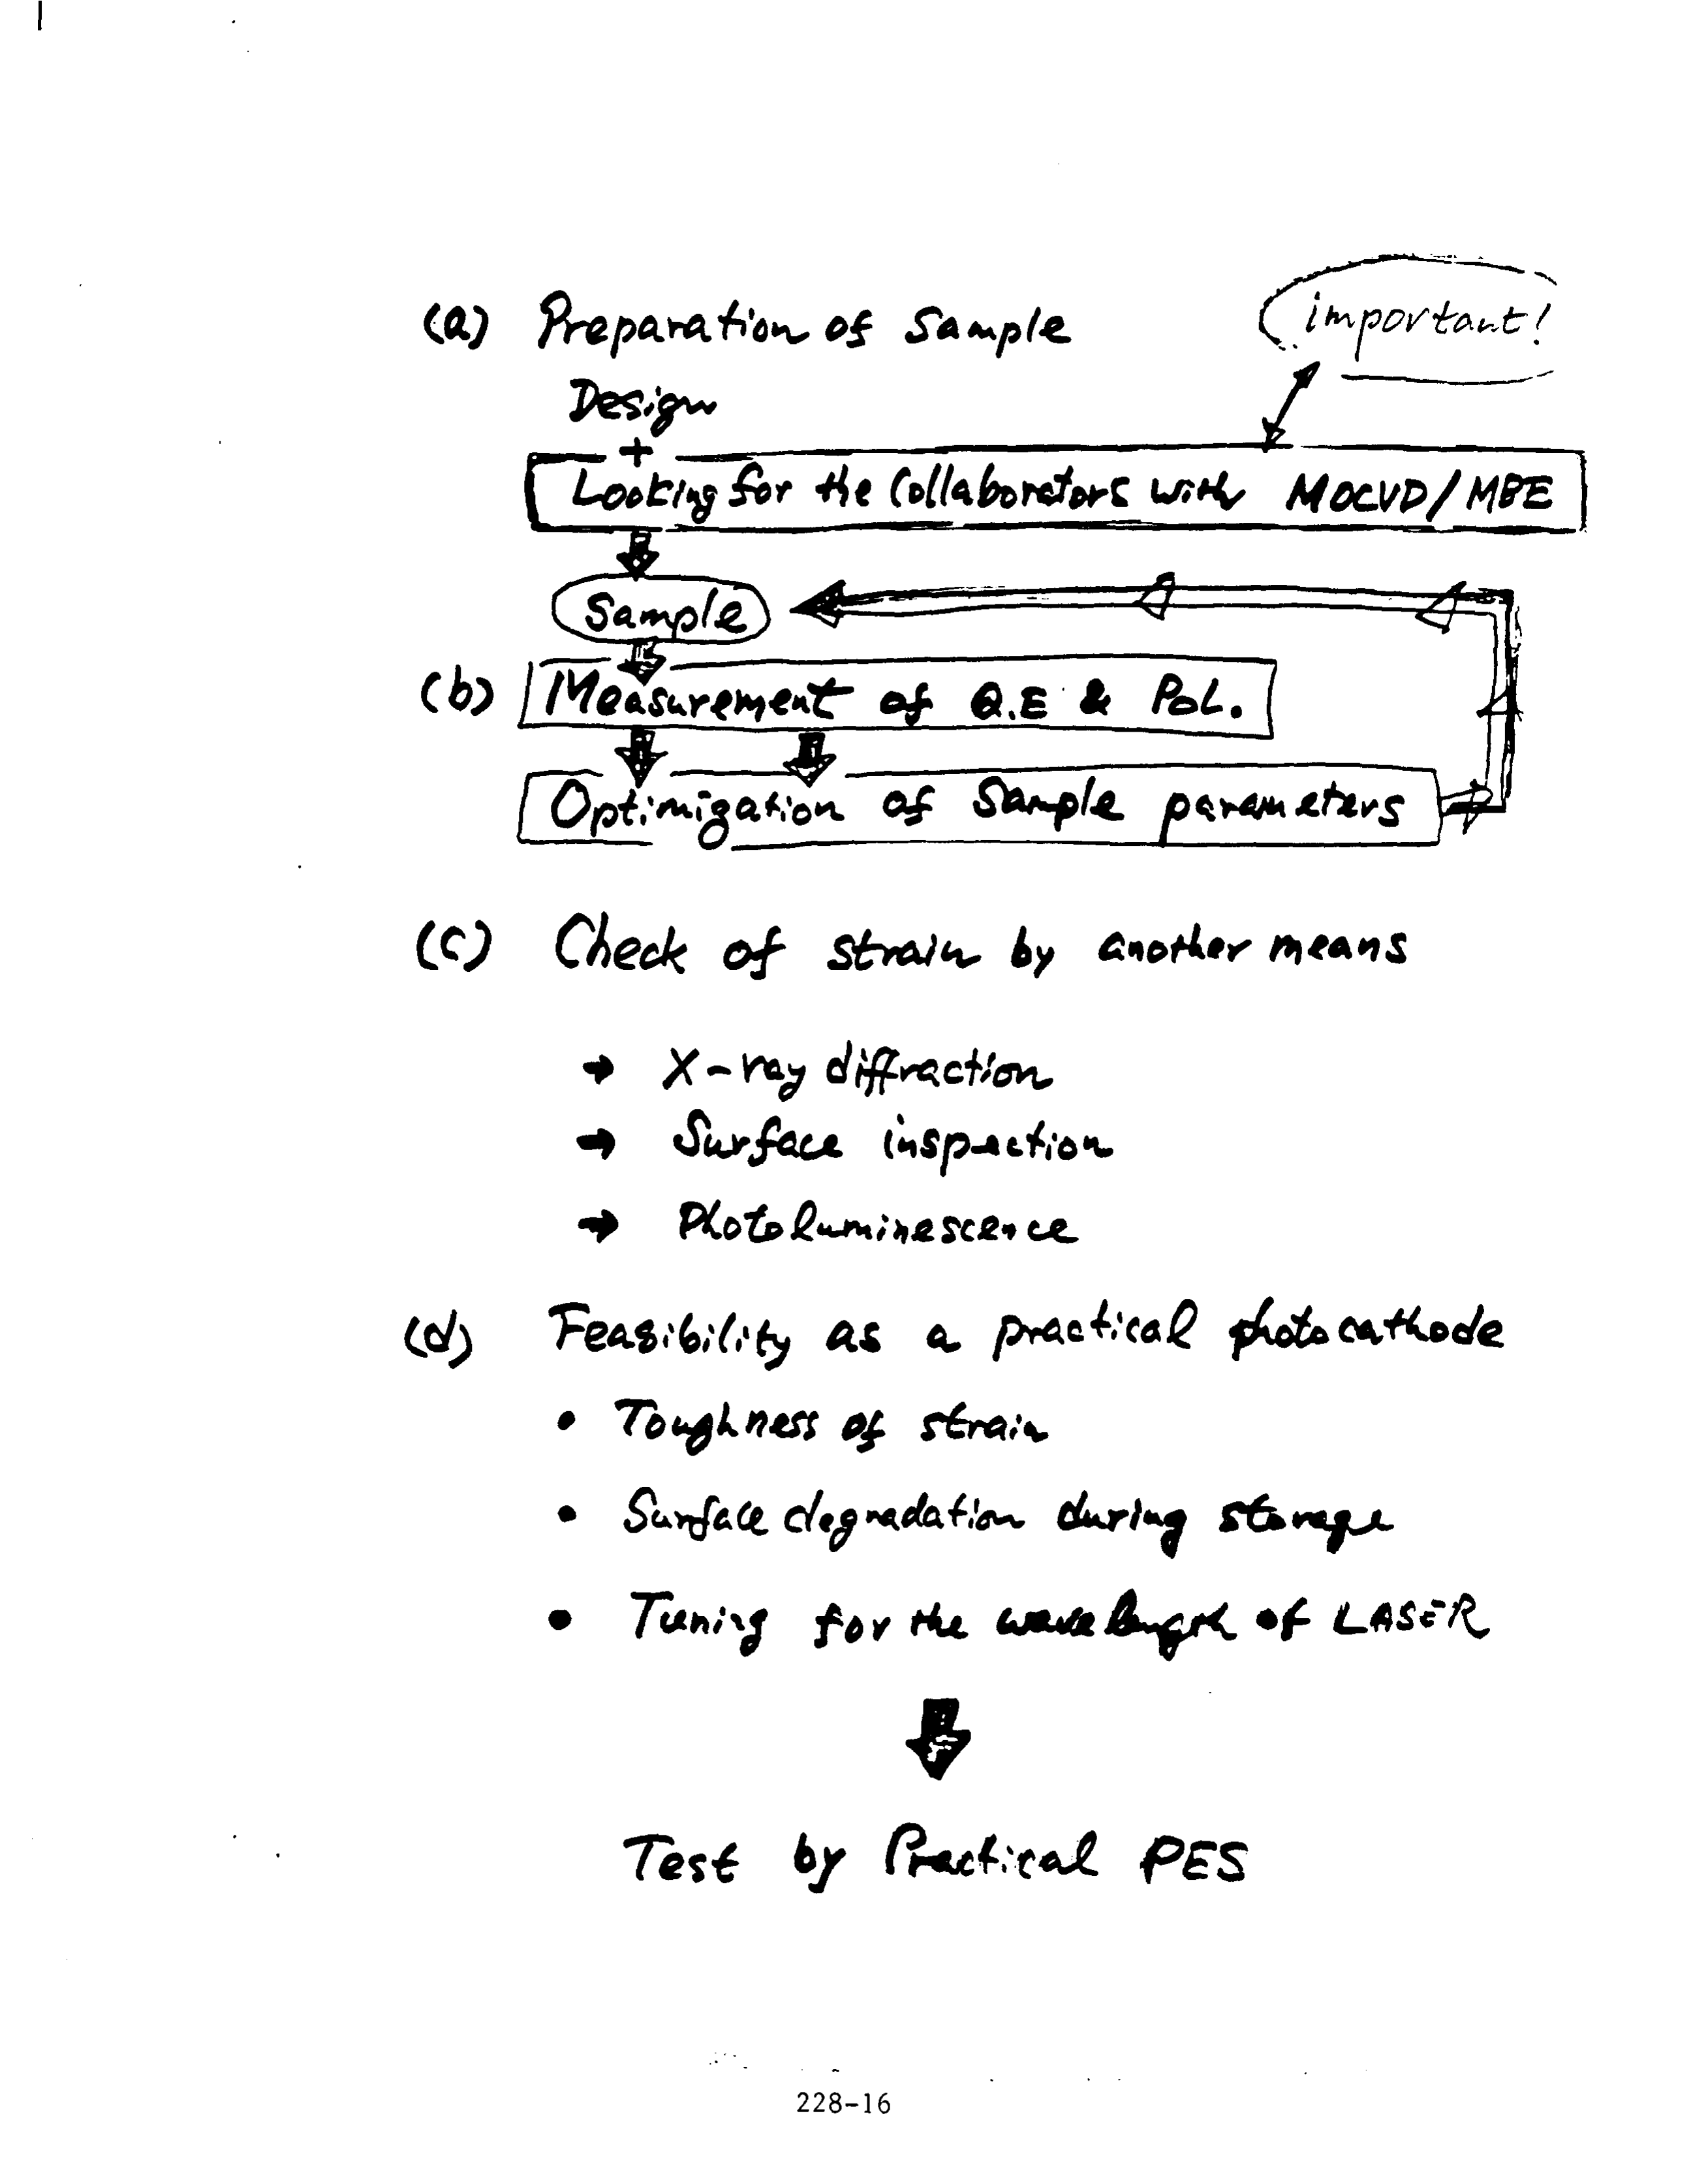 (a) Preparation of Sample
important!
Design
+
Looking for the Collaborators with MOCVD/MBE
Sample
(b) Measurement of Q.E & POL.
Optimigation of Sample parameters
(c) Check of strain by another means
→ X-ray diffraction
→ Surface inspection
→ Photoluminescence
(d) Feasibility as a practical photocathode
• Toughness of strain
• Surface degradation during storage
• Tuning for the wavelength of LASER
Test by Practical PES
228-16